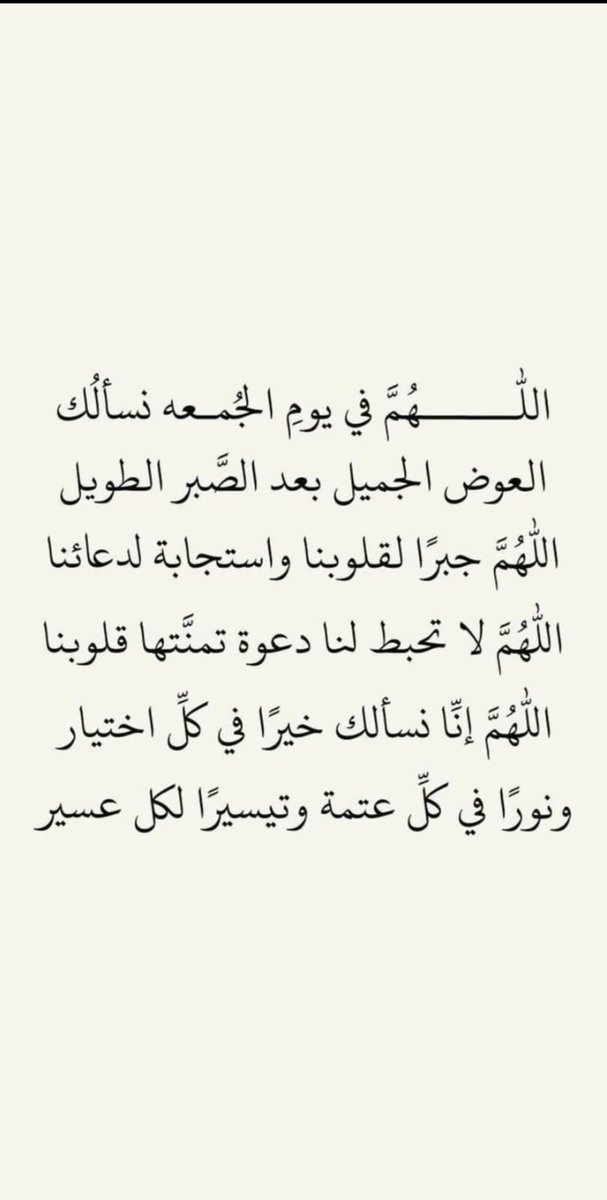 اللـــــــــهُمَّ في يومِ الجُمـعه نسألُك
العوض الجميل بعد الصَّبر الطويل
اللهُمَّ جبرًا لقلوبنا واستجابة لدعائنا
اللهُمَّ لا تحبط لنا دعوة تمنَّتها قلوبنا
اللهُمَّ إنِّا نسألك خيرًا في كلِّ اختيار
ونورًا في كلِّ عتمة وتيسيرًا لكل عسير